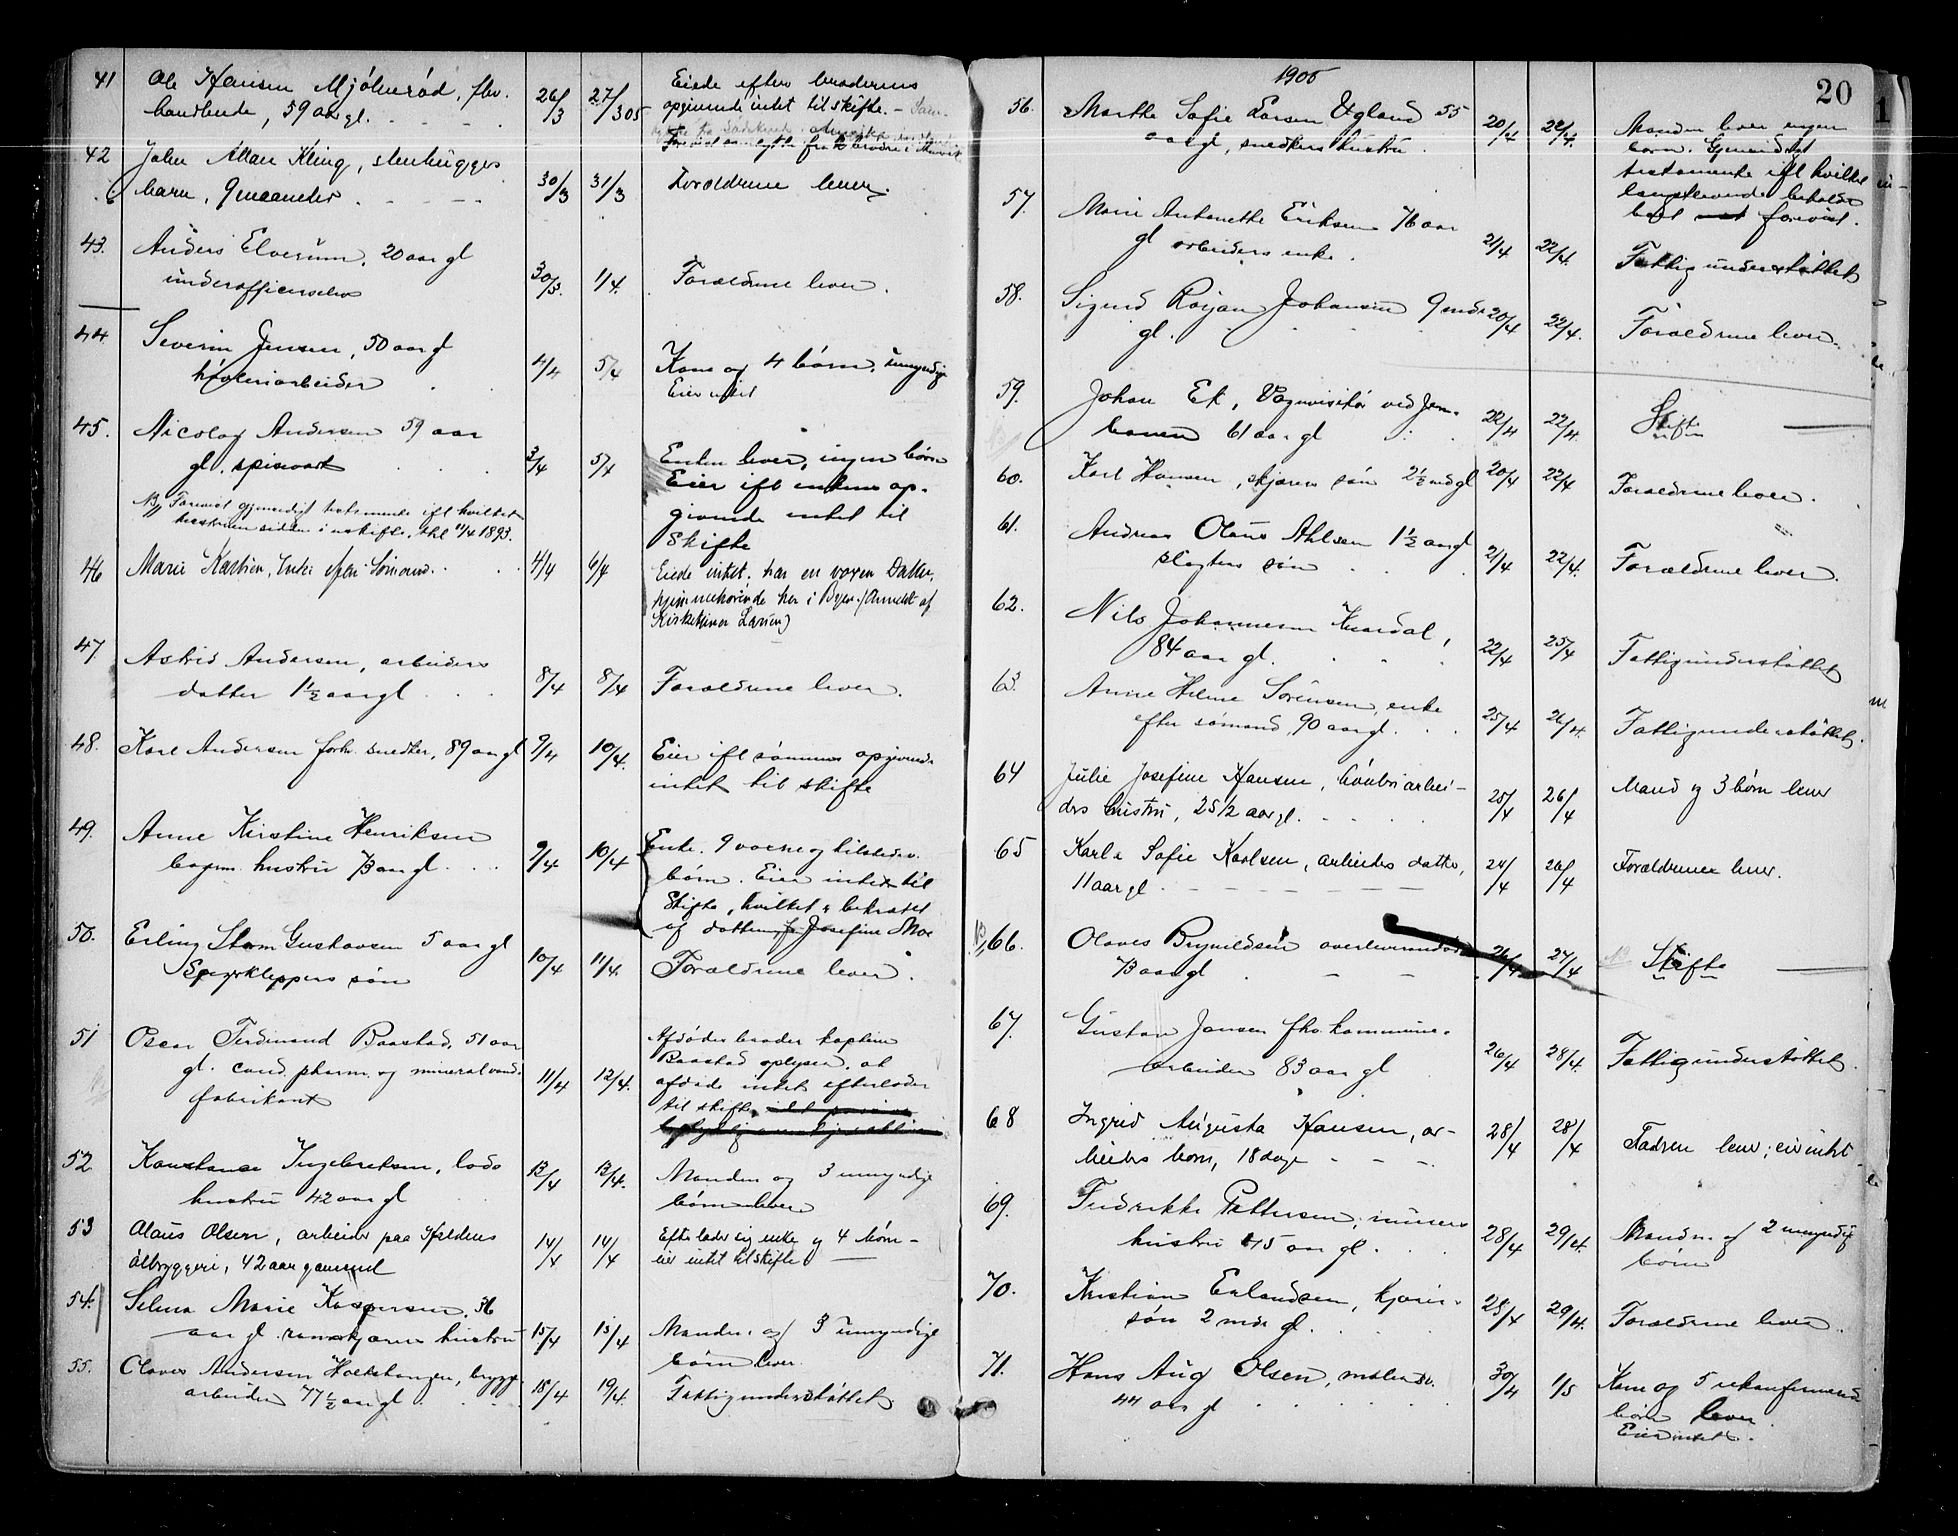 41 Ole Hansen Mjölneröd, fhv. 26/3 27/3 05 Eiede efter broderens
handlende, 59 aar gl. opgivende intet til skifte. –
42 John Allan Kling, stenhuggers 30/3 31/3 Forældrene lever.
barn, 9 maaneder
43. Anders Elverum, 20 aar gl 30/3 1/4. Forældrene lever.
underofficerselev
44 Severin Jensen, 50 aar gl 4/4 5/4 Kone og 4 börn, umyndige
høvleriarbeider Eier intet
45. Nicolay Andersen 59 aar 3/4 5/4 Enken lever, ingen börn
gl. spisevært Eier ifl enkens op-
NB Forevist gjensidigt testamente ifl hvilket givende intet til
hustruen sidder i uskifte, thl 11/4 1893. Skifte
46 Marie Karlsen, Enke efter Sömand. 4/4 6/4 Eiede intet, har en voxen Datter,
hjemmehørende her i Byen. (Anmeldt af
Larsen)
47 Astrid Andersen, arbeiders 8/4 8/4 Forældrene lever.
datter 1½ aar gl
48. Karl Andersen forh. snedker, 89 aar gl 9/4 10/4. Eier ifl sønnens opgivende
intet til skifte
49. Anne Kirstine Henriksen 9/4 10/4 Enke. 9 voxne og tilstedev.
hustru 73 aar gl börn. Eier intet til
Skifte, hvilket er bekræftet
af datteren Josefine Moe
50. Erling Storm Gustavsen 5 aar gl 10/4 11/4. Forældrene lever.
søn
51 Oscar Ferdinand Baastad, 51 aar 11/4 12/4. Afdødes broder kaptein
gl. cand. pharm. og mineralvand- Baastad oplyser, at
fabrikant afdøde intet efterlader
til skifte
52 Konstance Ingebretsen, lods 13/4 13/4. Manden og 3 umyndige
hustru 42 aar gl börn lever
53 Olaus Olsen, arbeider paa Haldens 14/4 14/4 Efterlader sig enke og 4 börn –
ølbryggeri, 42 aar gammel eier intet til skifte
54. Selma Marie Kaspersen, 36 15/4 15/4 Manden og 3 umyndige
aar gl. hustru börn lever.
55. Olaves Andersen Holtskongen, brygge- 18/4 19/4. Fattigunderstöttet.
arbeider 77½ aar gl
1905
20
56. Marthe Sofie Larsen Ugland 55 20/4 22/4. Manden lever ingen
aar gl, snedkers hustru. börn. Gjensidigt
testamente ifl hvilket
længstlevende beholder
boet forevist.
57. Marie Antonette Eriksen 76 aar 21/4 22/4. Fattigunderstöttet
gl arbeiders enke.
58. Sigurd Johansen 9 mdr 20/4 22/4. Forældrene lever.
gl.
59. Johan Ek, Vognvisitör ved jern- 22/4 22/4. Skifte
banen 61 aar gl
60. Karl Hansen, skjærers søn 2½ md gl 20/4 22/4 Forældrene lever.
61. Andreas Olaus Ahlsen 1½ aar gl 21/4 22/4. Forældrene lever.
slagters søn
62. Nils Johannesen Knardal, 22/4 25/4 Fattigunderstöttet
84 aar gl.
63. Anne Helene Sörensen, enke 25/4 26/4. Fattigunderstöttet.
efter sømand, 90 aar gl.
64 Julie Josefine Hansen, høvleriarbei- 25/4 26/4 Mand og 3 börn lever
ders hustru, 25½ aar gl.
65 Karla Sofie Karlsen, arbeiders datter, 24/4 26/4 Forældrene lever.
11 aar gl
66. Olaves Brynildsen 26/4 27/4 Skifte
73 aar gl
67. Gustav Jansen fhv. kommune- 26/4 28/4 Fattigunderstöttet.
arbeider 83 aar gl
68 Ingrid Augusta Hansen, ar- 28/4 28/4 Fadren lever; eier intet
beiders barn, 18 dage
69. Fredrikke Pettersen, murers 28/4 29/4. Manden og 2 umyndige
hustru 45 aar gl. börn
70. Kristian Erlandsen, kjøre- 28/4 29/4. Forældrene lever.
søn 2 mdr gl.
71. Hans Aug Olsen, maler 30/4 1/5 Kone og 5 ukonfirmerede
44 aar gl börn lever.
Eier intet.